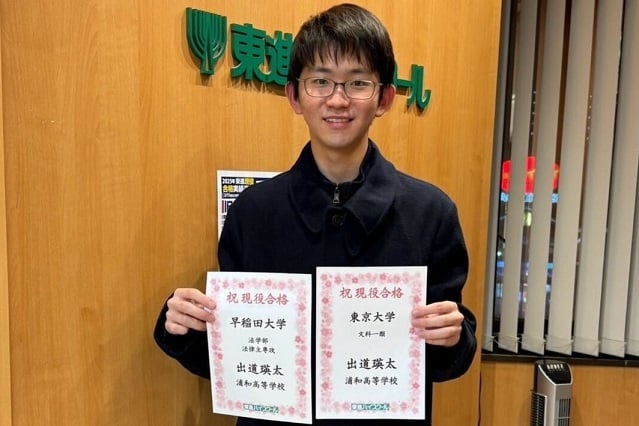 東進
クール
2025年 東進現役
合格実績
祝現役合格
早稲田大学
法学部
法律主専攻
出道瑛太
浦和高等学校
祝現役合格
東京大学
文科一類
出道瑛太
浦和高等学校
東進ハイスクール
東進ハイスクール